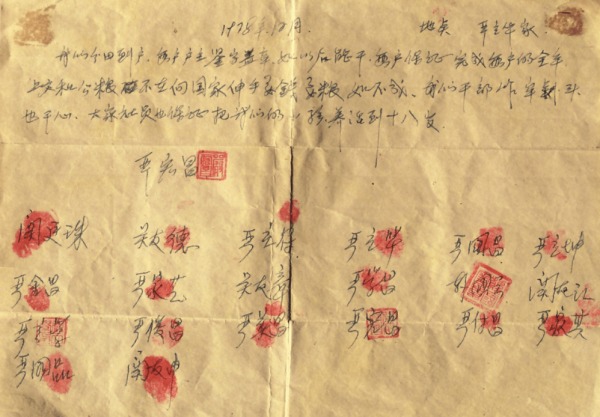 1978年12月 地点 严立华家
我们分田到户，每户户主签字盖章，如以后能干，每户保证完成每户的全年
上交和公粮不在向国家伸手要钱要粮，如不成，我们干部作牢杀头
也干心，大家社员也保证把我们的小孩养活到十八岁。
严宏昌
关廷珠 关友德 严立符 严立华 严国昌 严立坤
严金昌 严家芝 关友章 严学昌 韩国云 关友江
严立学 严俊昌 严美昌 严宏昌 严付昌 严家其
严国品 关友申